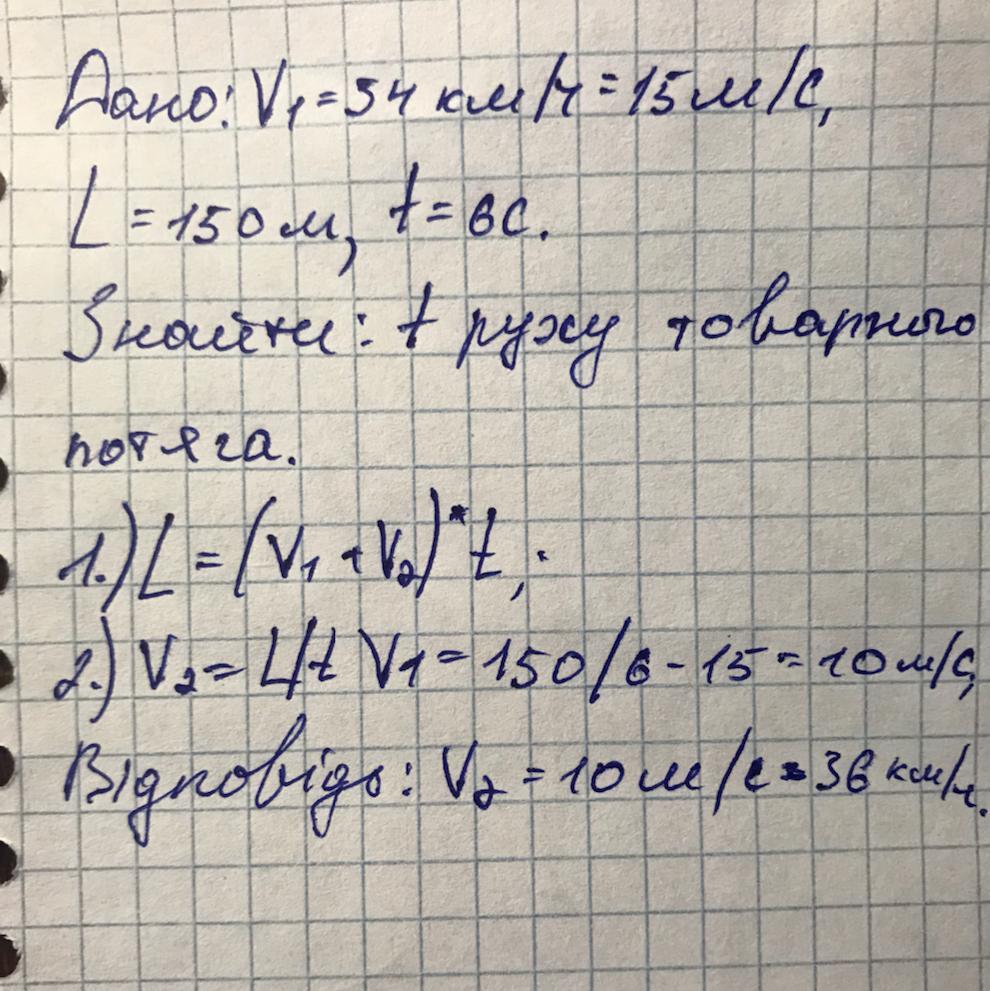 Дано: V1 = 54 км/ч = 15 м/с,
L = 150 м, t = 6с.
Знайти: t руху товарного
потяга.
1.) L = (V1 + V2) * t,
2.) V2 = L/t V1 = 150/6 - 15 = 10 м/с,
Відповідь: V2 = 10 м/с = 36 км/ч.